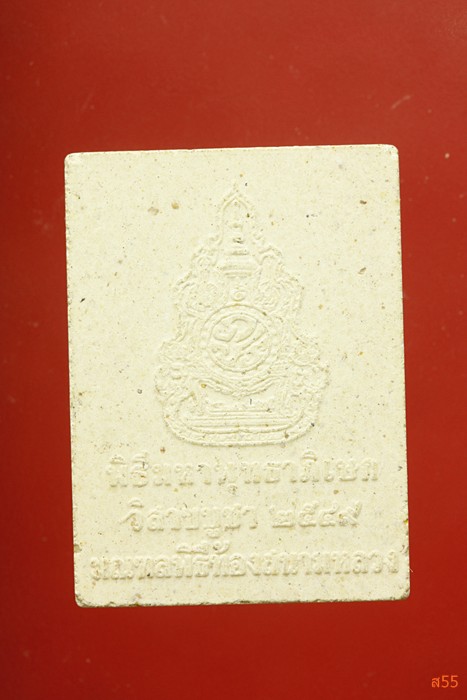 พิธีมหาพุทธาภิเษก
วิสาขบูชา ๒๕๔๙
มณฑลพิธีท้องสนามหลวง
ส55